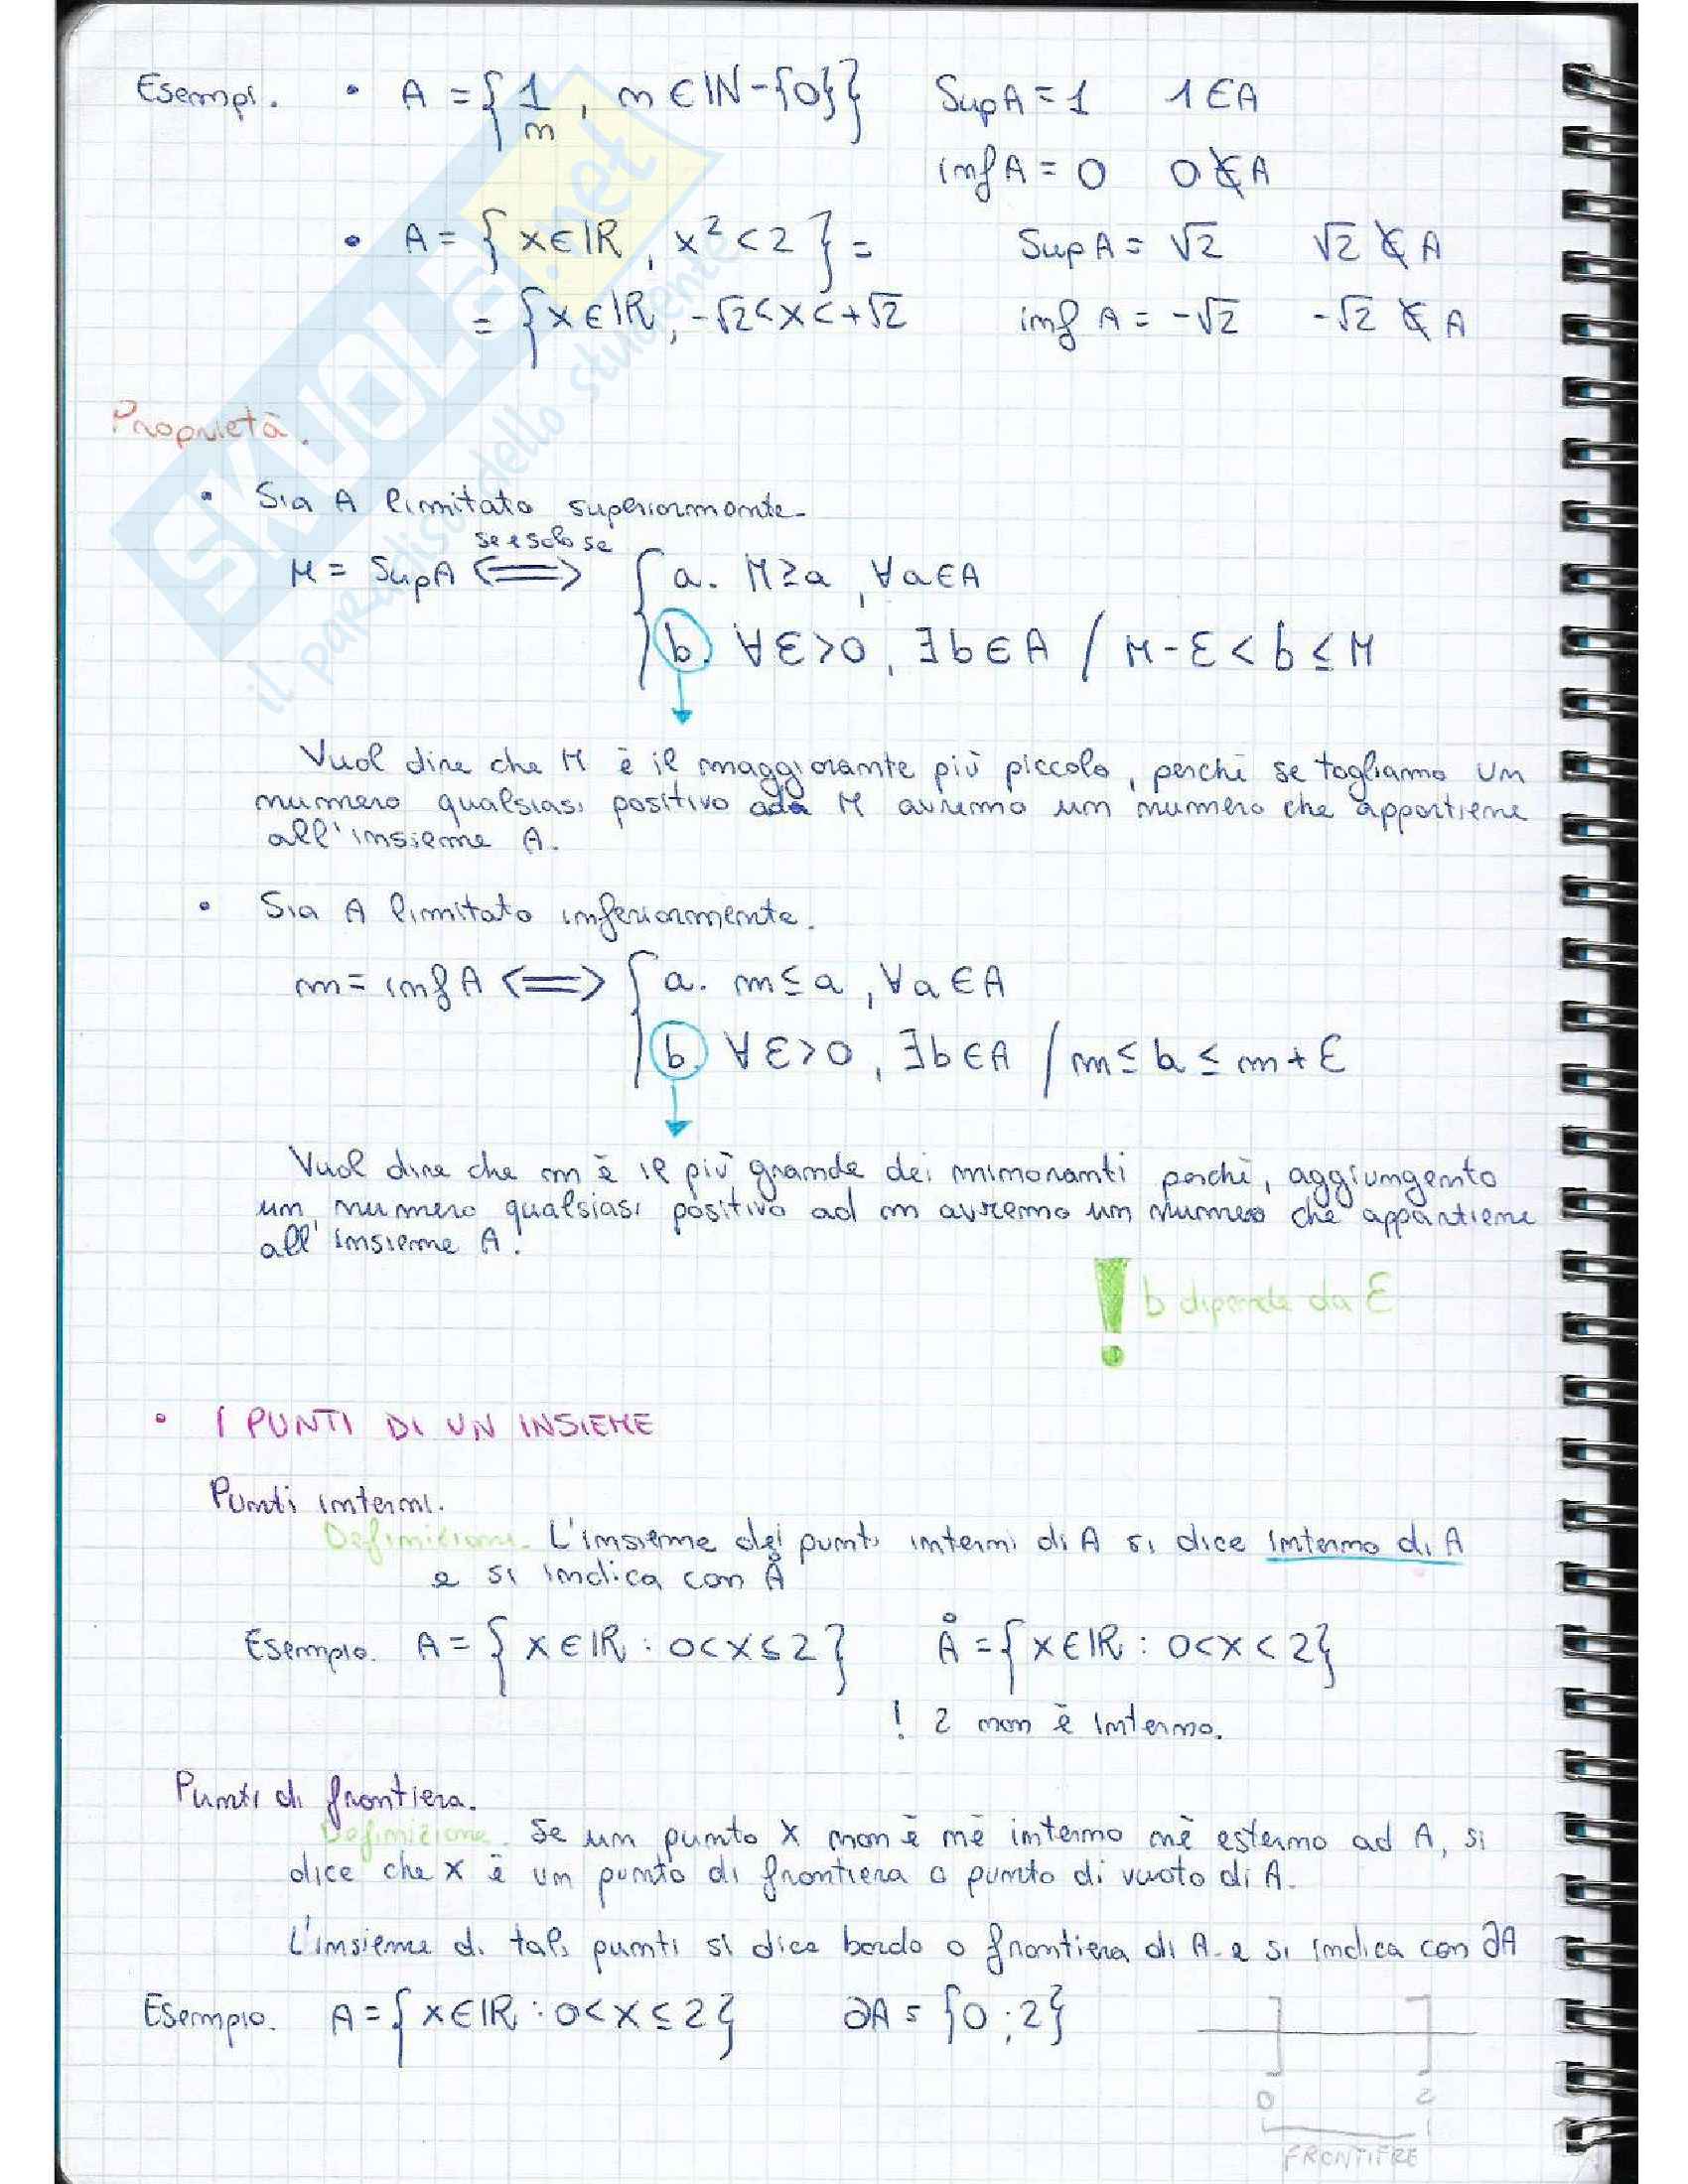 Esempi. • A = { 1/n , n ∈ ℕ - {0} } Sup A = 1 1 ∈ A
inf A = 0 0 ∉ A
• A = { x ∈ ℝ , x² < 2 } = Sup A = √2 √2 ∉ A
= { x ∈ ℝ , -√2 < x < +√2 inf A = -√2 -√2 ∉ A
Proprietà.
• Sia A limitato superiormente.
se e solo se
M = Sup A <=> { a. M ≥ a , ∀ a ∈ A
b. ∀ ε > 0 , ∃ b ∈ A / M - ε < b ≤ M
Vuol dire che M è il maggiorante più piccolo, perchè se togliamo un
numero qualsiasi positivo ad M avremo un numero che appartiene
all'insieme A.
• Sia A limitato inferiormente.
m = inf A <=> { a. m ≤ a , ∀ a ∈ A
b. ∀ ε > 0 , ∃ b ∈ A / m ≤ b ≤ m + ε
Vuol dire che m è il più grande dei minoranti perchè, aggiungento
un numero qualsiasi positivo ad m avremo un numero che appartiene
all'insieme A.
! b dipende da ε
• I PUNTI DI UN INSIEME
Punti interni.
Definizione. L'insieme dei punti interni di A si dice interno di A
e si indica con Å
Esempio. A = { x ∈ ℝ : 0 < x ≤ 2 } Å = { x ∈ ℝ : 0 < x < 2 }
! 2 non è interno.
Punti di frontiera.
Definizione. Se un punto x non è nè interno nè esterno ad A, si
dice che x è un punto di frontiera o punto di vuoto di A.
L'insieme di tali punti si dice bordo o frontiera di A e si indica con ∂A
Esempio. A = { x ∈ ℝ : 0 < x ≤ 2 } ∂A = { 0 ; 2 }
0 2
FRONTIERE
SKUOLA.net
il paradiso dello studente